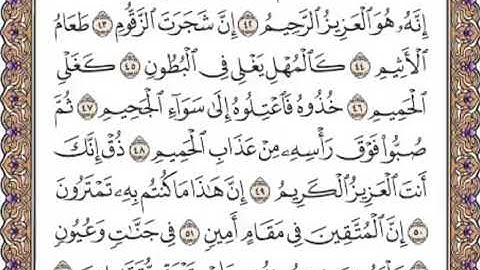 إِنَّهُۥ هُوَ ٱلْعَزِيزُ ٱلرَّحِيمُ ٤٢ إِنَّ شَجَرَتَ ٱلزَّقُّومِ ٤٣ طَعَامُ
ٱلْأَثِيمِ ٤٤ كَٱلْمُهْلِ يَغْلِى فِى ٱلْبُطُونِ ٤٥ كَغَلْىِ
ٱلْحَمِيمِ ٤٦ خُذُوهُ فَٱعْتِلُوهُ إِلَىٰ سَوَآءِ ٱلْجَحِيمِ ٤٧ ثُمَّ
صُبُّوا۟ فَوْقَ رَأْسِهِۦ مِنْ عَذَابِ ٱلْحَمِيمِ ٤٨ ذُقْ إِنَّكَ
أَنتَ ٱلْعَزِيزُ ٱلْكَرِيمُ ٤٩ إِنَّ هَٰذَا مَا كُنتُم بِهِۦ تَمْتَرُونَ
٥٠ إِنَّ ٱلْمُتَّقِينَ فِى مَقَامٍ أَمِينٍ ٥١ فِى جَنَّٰتٍ وَعُيُونٍ